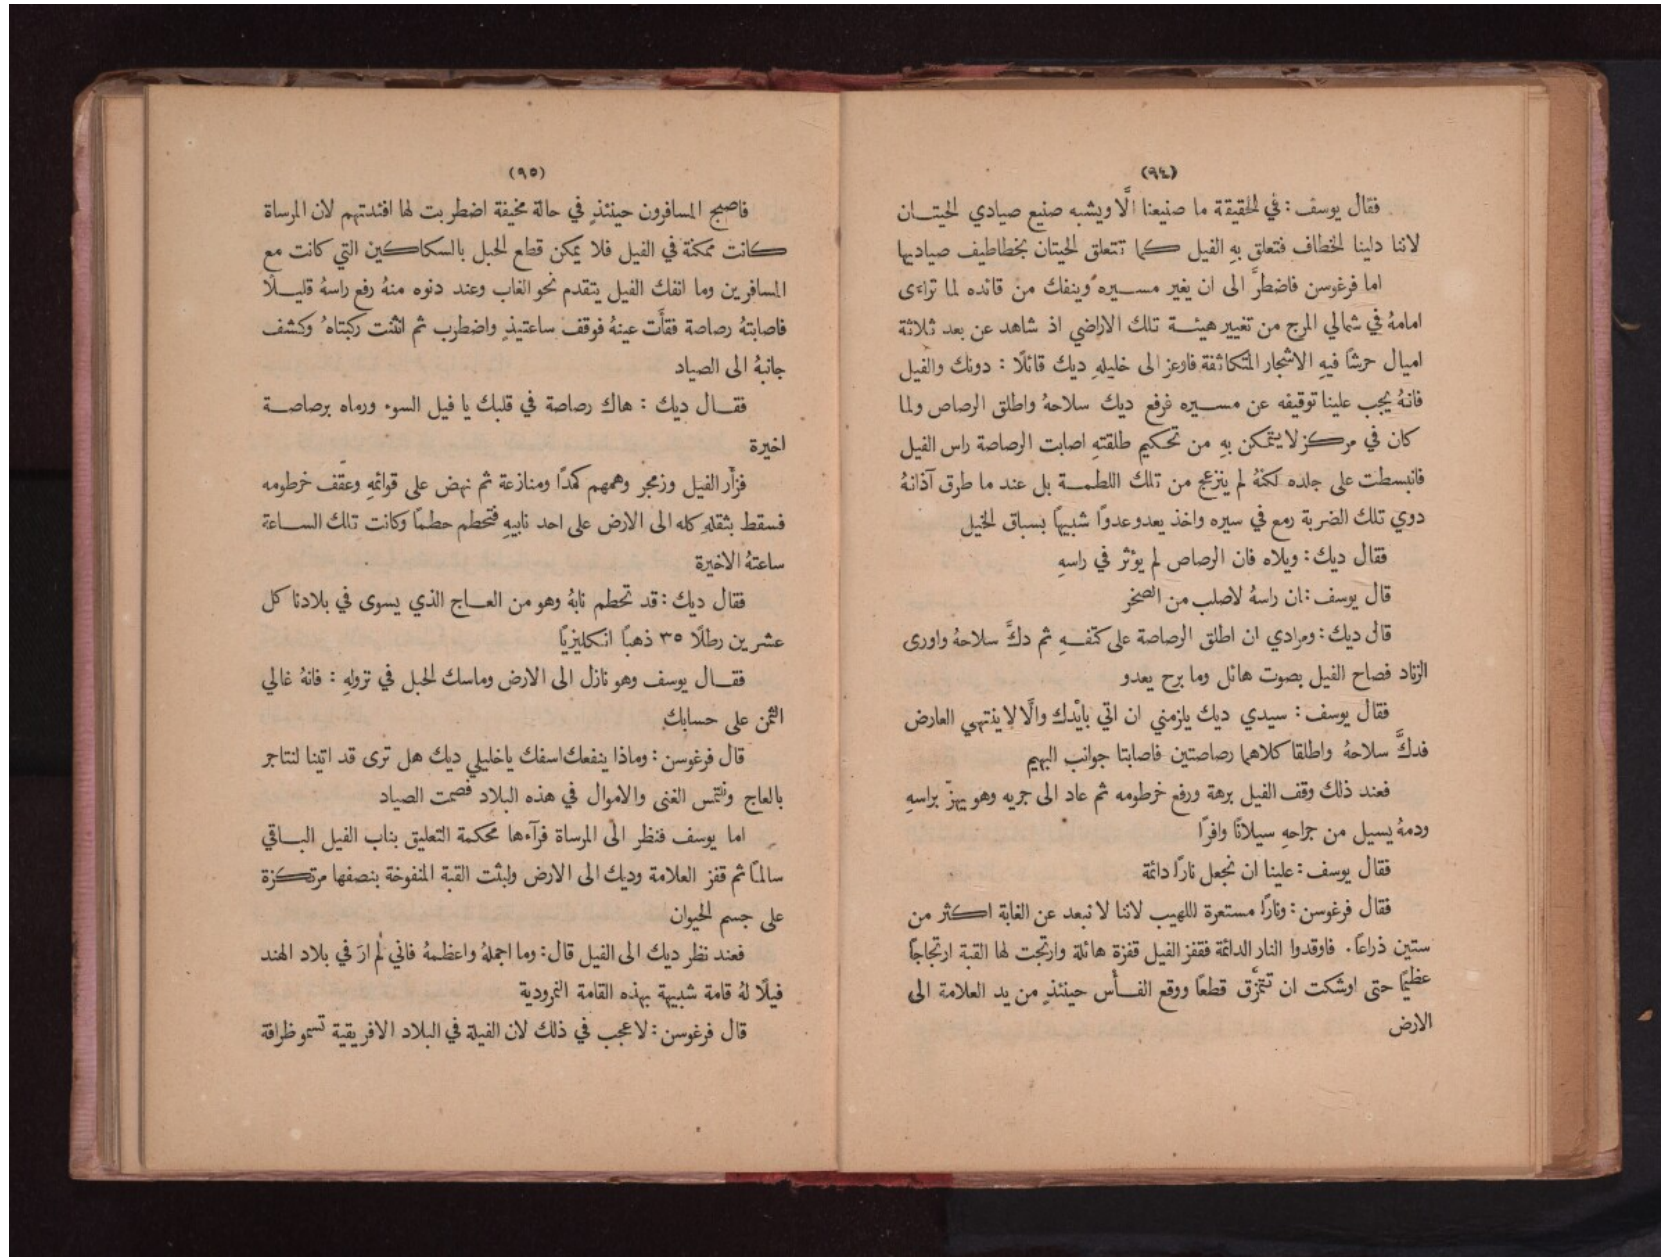 (٩٤)
فقال يوسف : في الحقيقة ما صنيعنا الَّا ويشبه صنيع صيادي الحيتــان
لاننا دلينا الخطاف فتعلق بهِ الفيل كما تتعلق الحيتان بخطاطيف صياديها
اما فرغوسن فاضطرَّ الى ان يغير مسـيره وينفك من قائده لما تراءَى
امامهُ في شمالي المرج من تغيير هيئـة تلك الاراضي اذ شاهد عن بعد ثلاثة
اميال حرشًا فيهِ الاشجار المتكاثفة فاوعز الى خليلهِ ديك قائلًا : دونك والفيل
فانهُ يجب علينا توقيفه عن مسـيره فرفع ديك سلاحهُ واطلق الرصاص ولما
كان في مركز لا يتمكن بهِ من تحكيم طلقتهِ اصابت الرصاصة راس الفيل
فانبسطت على جلده لكنهُ لم ينزعج من تلك اللطمـة بل عند ما طرق آذانهُ
دوي تلك الضربة رمع في سيره واخذ يعدو عدوًا شبيهًا بسباق الخيل
فقال ديك : ويلاه فان الرصاص لم يؤثر في راسهِ
قال يوسف : ان راسهُ لاصلب من الصخر
قال ديك : ومرادي ان اطلق الرصاصة على كتفـهِ ثم دكَّ سلاحهُ واورى
الزناد فصاح الفيل بصوت هائل وما برح يعدو
فقال يوسف : سيدي ديك يلزمني ان اتي بايْدك والَّا لا ينتهي العارض
فدكَّ سلاحهُ واطلقا كلاهما رصاصتين فاصابتا جوانب البهيم
فعند ذلك وقف الفيل برهة ورفع خرطومه ثم عاد الى جريه وهو يهزّ براسهِ
ودمهُ يسيل من جراحهِ سيلانًا وافرًا
فقال يوسف : علينا ان نجعل نارًا دائمة
فقال فرغوسن : ونارًا مستعرة اللهيب لاننا لا نبعد عن الغابة اكثر من
ستين ذراعًا . فاوقدوا النار الدائمة فقفز الفيل قفزة هائلة وارتجت لها القبة ارتجاجًا
عظيمًا حتى اوشكت ان تتمزَّق قطعًا ووقع الفـأس حينئذٍ من يد العلامة الى
الارض
(٩٥)
فاصبح المسافرون حينئذٍ في حالة مخيفة اضطربت لها افئدتهم لان المرساة
كانت ممكنة في الفيل فلا يمكن قطع الحبل بالسكاكين التي كانت مع
المسافرين وما انفك الفيل يتقدم نحو الغاب وعند دنوه منهُ رفع راسهُ قليـلًا
فاصابتهُ رصاصة فقأَت عينهُ فوقف ساعتيذٍ واضطرب ثم انثنت ركبتاهُ وكشف
جانبهُ الى الصياد
فقـال ديك : هاك رصاصة في قلبك يا فيل السوء ورماه برصاصـة
اخيرة
فزأَر الفيل وزمجر وهمهم كمدًا ومنازعة ثم نهض على قوائمهِ وعقَف خرطومه
فسقط بثقلهِ كله الى الارض على احد نابيهِ فتحطم حطمًا وكانت تلك السـاعة
ساعتهُ الاخيرة
فقال ديك : قد تحطم نابهُ وهو من العـاج الذي يسوى في بلادنا كل
عشرين رطلًا ٣٥ ذهبًا انكليزيًا
فقـال يوسف وهو نازل الى الارض وماسك الحبل في نزولهِ : فانهُ غالي
الثمن على حسابك
قال فرغوسن : وماذا ينفعك اسفك يا خليلي ديك هل ترى قد اتينا لنتاجر
بالعاج ونلتمس الغنى والاموال في هذه البلاد فصمت الصياد
اما يوسف فنظر الى المرساة فرآءها محكمة التعليق بناب الفيل البـاقي
سالمًا ثم قفز العلامة وديك الى الارض ولبثت القبة المنفوخة بنصفها مرتكزة
على جسم الحيوان
فعند نظر ديك الى الفيل قال : وما اجملهُ واعظمهُ فاني لم ارَ في بلاد الهند
فيلًا لهُ قامة شبيهة بهذه القامة النمرودية
قال فرغوسن : لا عجب في ذلك لان الفيلة في البلاد الافريقية تسمو ظرافة